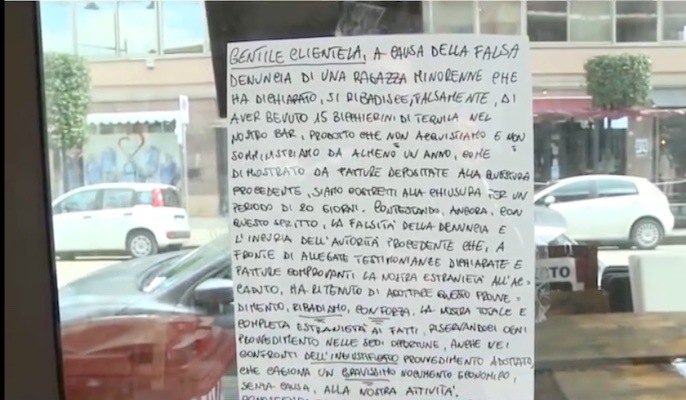 GENTILE CLIENTELA, A CAUSA DELLA FALSA
DENUNCIA DI UNA RAGAZZA MINORENNE CHE
HA DICHIARATO, SI RIBADISCE, FALSAMENTE, DI
AVER BEVUTO 15 BICCHIERINI DI TEQUILA NEL
NOSTRO BAR, PRODOTTO CHE NON ACQUISTIAMO E NON
SOMMINISTRIAMO DA ALMENO UN ANNO, COME
DIMOSTRATO DA FATTURE DEPOSITATE ALLA QUESTURA
PROCEDENTE, SIAMO COSTRETTI ALLA CHIUSURA PER UN
PERIODO DI 20 GIORNI. CONTESTANDO, ANCORA, CON
QUESTO SCRITTO, LA FALSITÀ DELLA DENUNCIA E
L'INCURIA DELL'AUTORITÀ PROCEDENTE CHE, A
FRONTE DI ALLEGATE TESTIMONIANZE DICHIARATE E
FATTURE COMPROVANTI LA NOSTRA ESTRANEITÀ ALL'AC-
CADUTO, HA RITENUTO DI ADOTTARE QUESTO PROVVE-
DIMENTO, RIBADIAMO, CON FORZA, LA NOSTRA TOTALE E
COMPLETA ESTRANEITÀ AI FATTI, RISERVANDOCI OGNI
PROVVEDIMENTO NELLE SEDI OPPORTUNE, ANCHE NEI
CONFRONTI DELL'INGIUSTIFICATO PROVVEDIMENTO ADOTTATO,
CHE CAGIONA UN GRAVISSIMO NOCUMENTO ECONOMICO,
SENZA CAUSA, ALLA NOSTRA ATTIVITÀ.